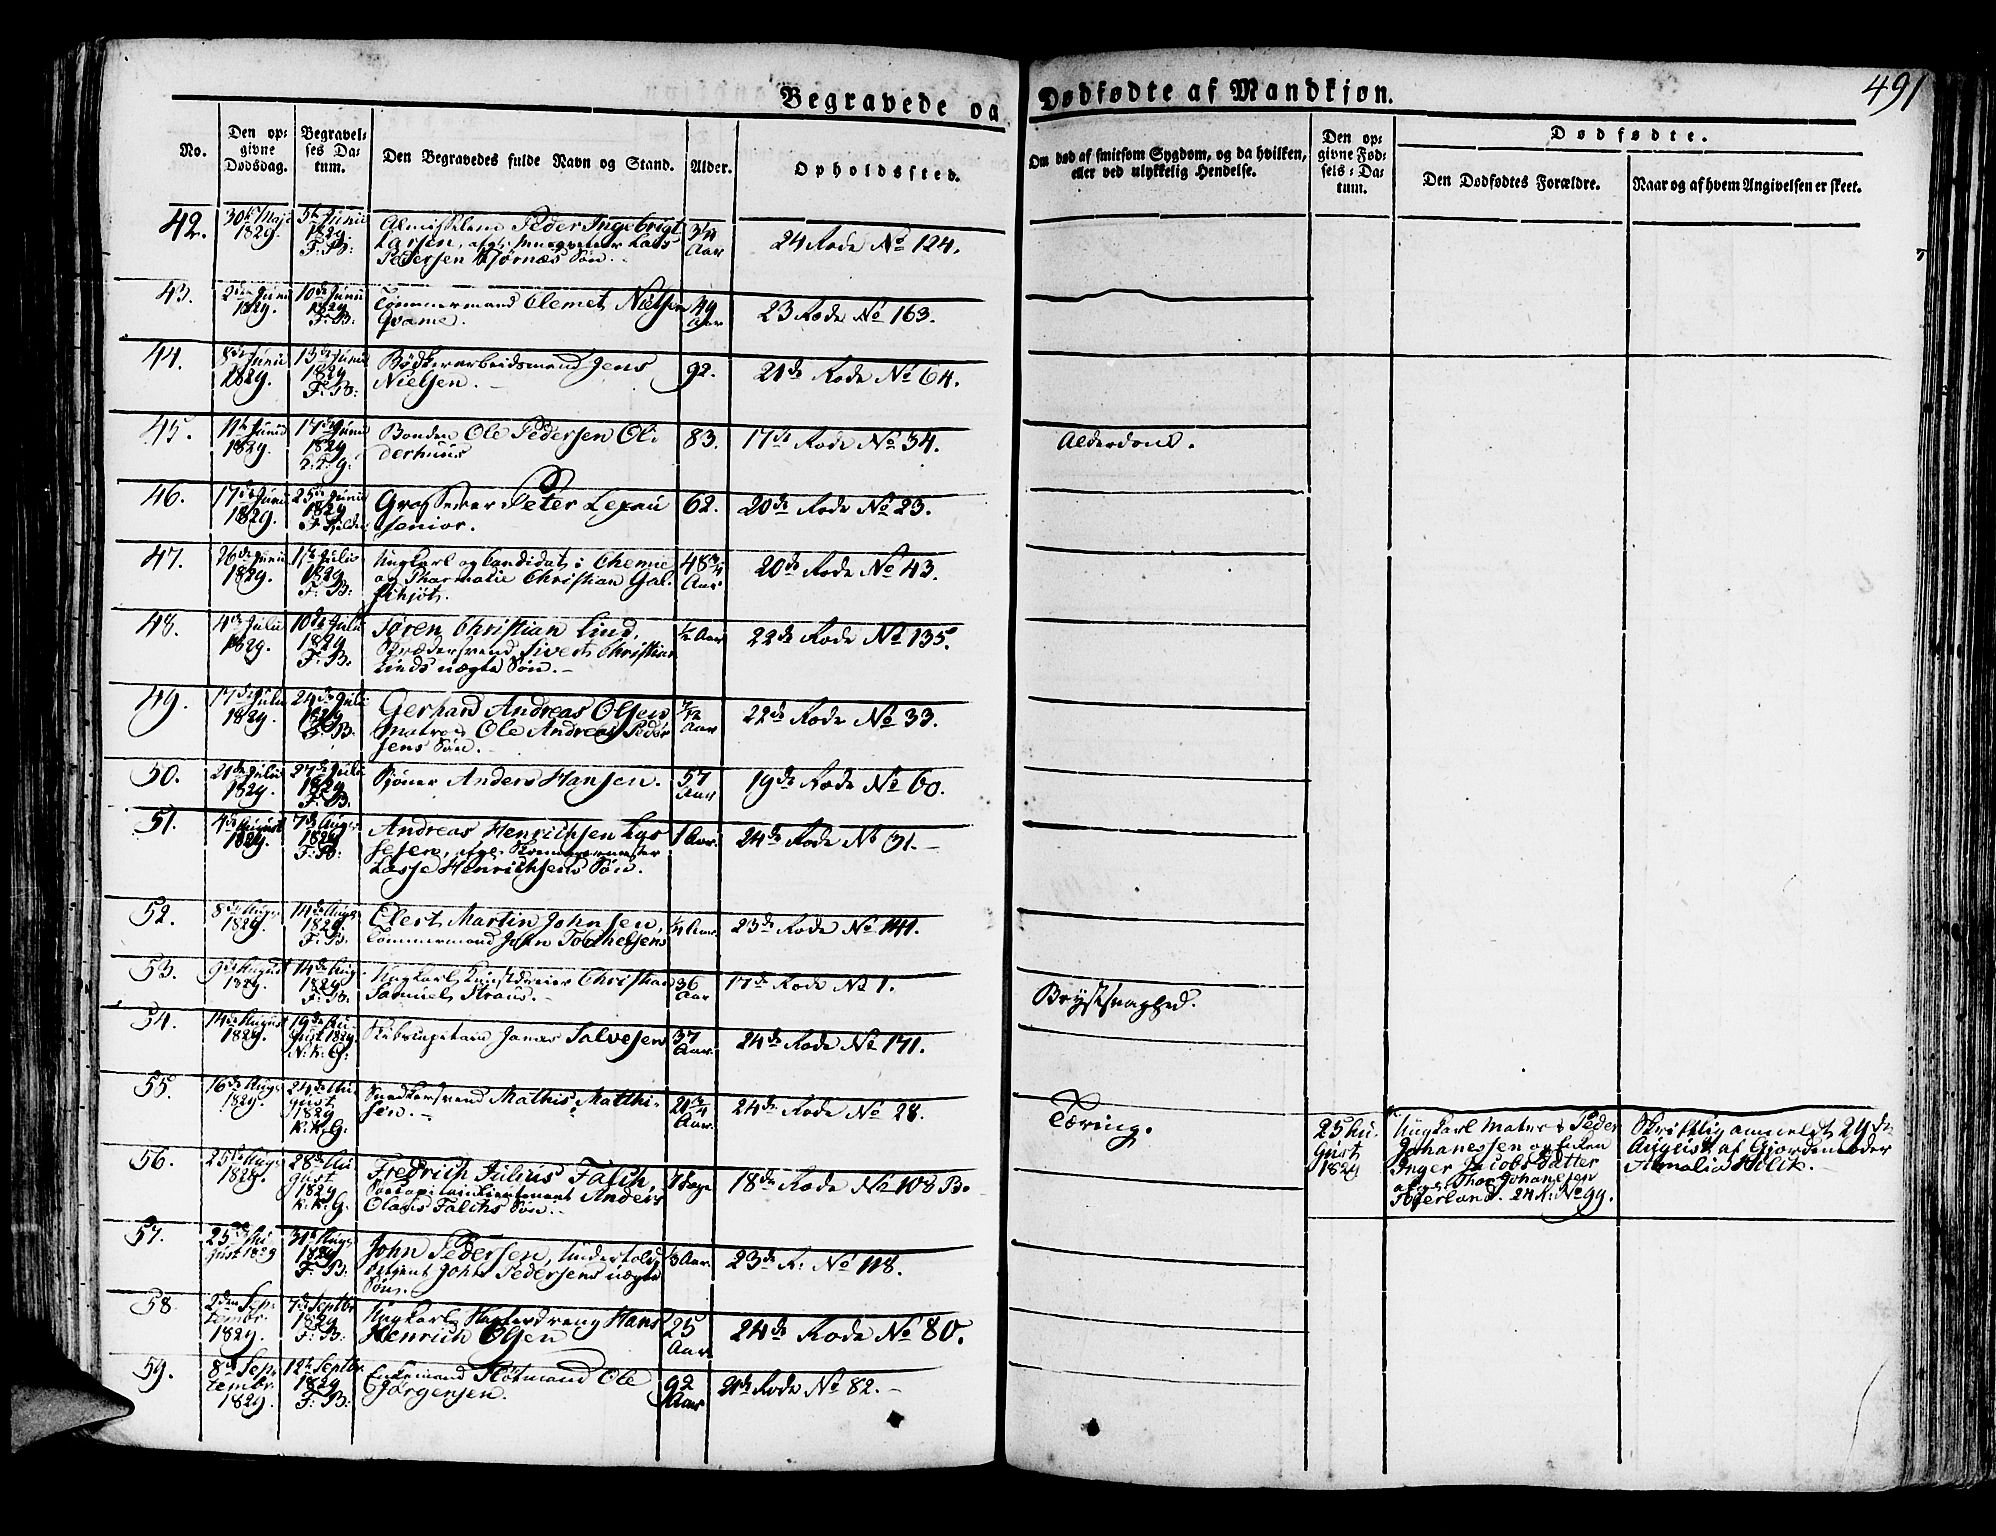 491
Begravede og Dødfødte af Mandkjøn.
No.
Den op-
givne
Dødsdag.
Begravel-
ses Da-
tum.
Den Begravedes fulde Navn og Stand.
Alder.
Opholdssted.
Om død af smitsom Sygdom, og da hvilken,
eller ved ulykkelig Hendelse.
Den op-
givne Fød-
sels-Da-
tum.
Dødfødte.
Den Dødfødtes Forældre.
Naar og af hvem Angivelsen er skeet.
42. 30te Maji 1829. 5te Junii 1829. F: B: Peder Ingebrigt
Larsen, Lars
Pedersen Bjørnæs Søn. 3/4 Aar 24 Rode No 124.
43. 2den Junii 1829. 10de Junii 1829. F: B: Tømmermand Clemet Nielsen
Qvame. 49 Aar 23 Rode No 163.
44. 8de Junii 1829. 13de Junii 1829 F: B: Bødkerarbeidsmand Jens
Nielsen. 92. 21de Rode No 64.
45. 11te Junii 1829. 17de Junii 1829 Bonden Ole Pedersen Ol
derhuus 83. 17de Rode No 34. Alderdom.
46. 17de Junii 1829. 25de Junii 1829 Grosserer Peter Lexau
senior. 62. 20de Rode No 23.
47. 26de Junii 1829. 1te Julii 1829 F: B: Ungkarl og Candidat i Chemie
og Pharmatie Christian 48 3/4 Aar 20de Rode No 43.
48. 4de Julii 1829. 10de Julii 1829 F: B: Søren Christian Lind,
Skrædersvend Sivert Christian
Linds ægte Søn. 1/2 Aar 22de Rode No 135.
49. 17de Julii 1829. 24de Julii 1829 F: B. Gerhard Andreas Olsen
Matros Ole Andreas Peder
sens Søn. 7/12 Aar 22de Rode No 33.
50. 21de Julii 1829. 27de Julii 1829 F: B. Anders Hansen. 57 Aar 19de Rode No 60.
51. 4de August 1829. 7de Aug: 1829 F: B: Andreas Henrichsen Las
sesen,
Lasse Henrichsens Søn. 1 Aar. 24de Rode No 31.
52. 8de Aug: 1829. 14de Aug: 1829. F: B. Elert Martin Johnsen,
Tømmermand John 1/4 Aar. 23de Rode No 141.
53. 9de August 1829. 14de Aug: 1829 F: B: Ungkarl Kunstdreier Christian
Samuel Strand. 36 Aar 17de Rode No 1. Brystsvaghed.
54. 14de August 1829. 19de Au gust 1829. N: K: G: Skibscapitain Jonas Salvesen 37 Aar. 24de Rode No 171.
55. 16de Aug: 1829. 24de Au gust 1829 K: K: G: Snedkersvend Mathis Matthi-
sen. 21 3/4 Aar. 24de Rode No 28. Tæring.
25 Au-
gust
1829
Ungkarl Matros Peder
Johanessen og Enken
Inger Jacobs Datter
Thor Johanesen
24 R: No 99.
Skriftlig anmeldt 29de
August af Gjordemoder
Amalia Holck.
56. 25de Aug: 1829. 28de Au gust 1829 K: K: G. Fredrich Julius Falch,
Anders
Olaus Falchs Søn. 18de Rode No 108 B.
57. 25de Au gust 1829 31te Aug: 1829 F: B: John Pedersen, Undertold
John Pedersens uægte
Søn. 3 Aar. 23de R: No 118.
58. 2den Sep- tembr: 1829. 7de Septbr 1829 F: B: Ungkarl Hans
Henrich Olsen 25 Aar. 24de Rode No 80.
59. 8de Sep- tembr: 1829. 12te Septbr. 1829 F: B: Enkemand Ole
Jørgensen. 92 Aar 21de Rode No 82.